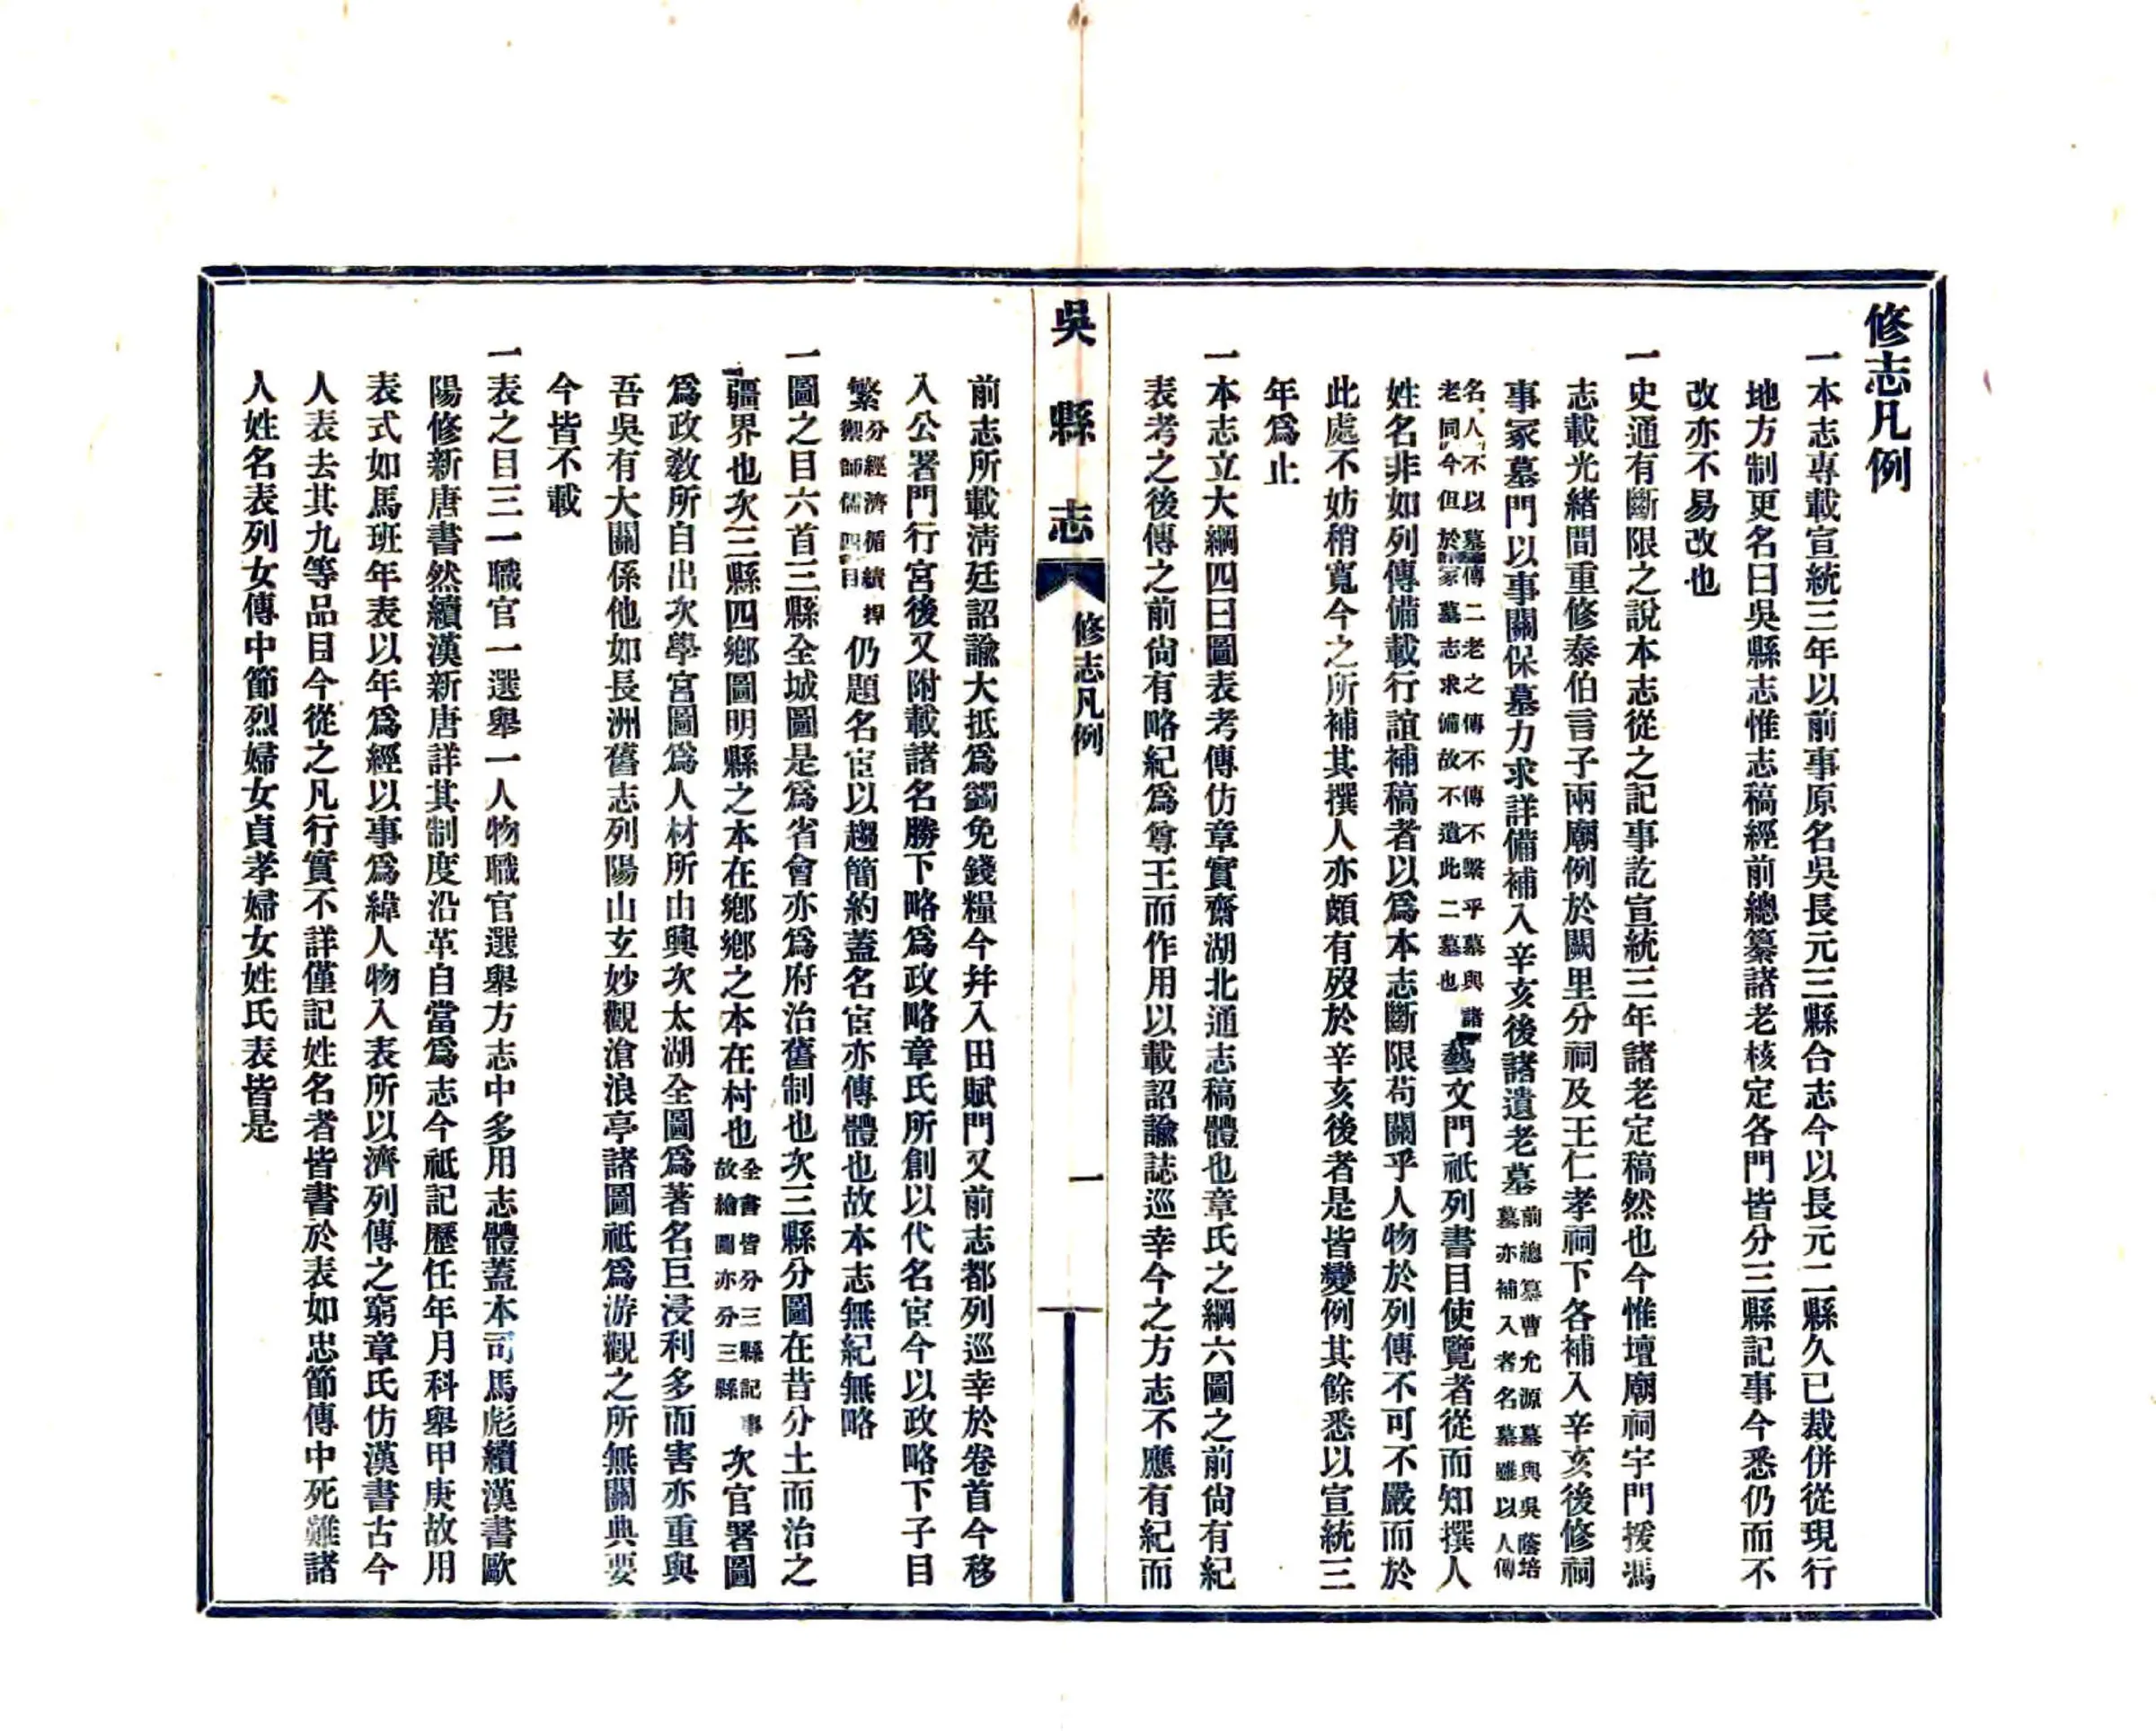 修志凡例
一本志專載宣統三年以前事原名吳長元三縣合志今以長元二縣久已裁併從現行
地方制更名曰吳縣志惟志稿經前總纂諸老核定各門皆分三縣記事今悉仍而不
改亦不易改也
一史通有斷限之說本志從之記事訖宣統三年諸老定稿然也今惟壇廟祠宇門援馮
志載光緒間重修泰伯言子兩廟例於闕里分祠及王仁孝祠下各補入辛亥後修祠
事冢墓門以事關保墓力求詳備補入辛亥後諸遺老墓前總纂曹允源墓與吳蔭培墓亦補入者名墓雖以人傳
名人不以墓傳二老之傳不傳不繫乎墓與諸老同今但於冢墓志求備故不遺此二墓也藝文門祇列書目使覽者從而知撰人
姓名非如列傳備載行誼補稿者以爲本志斷限苟關乎人物於列傳不可不嚴而於
此處不妨稍寬今之所補其撰人亦頗有歿於辛亥後者是皆變例其餘悉以宣統三
年爲止
一本志立大綱四曰圖表考傳仿章實齋湖北通志稿體也章氏之綱六圖之前尙有紀
表考之後傳之前尙有略紀爲尊王而作用以載詔諭誌巡幸今之方志不應有紀而
吳縣志
修志凡例
一
前志所載淸廷詔諭大抵爲蠲免錢糧今幷入田賦門又前志都列巡幸於卷首今移
入公署門行宮後又附載諸名勝下略爲政略章氏所創以代名宦今以政略下子目
繁分經濟循績捍禦師儒四目仍題名宦以趨簡約蓋名宦亦傳體也故本志無紀無略
一圖之目六首三縣全城圖是爲省會亦爲府治舊制也次三縣分圖在昔分土而治之
疆界也次三縣四鄉圖明縣之本在鄉鄉之本在村也全書皆分三縣記事故繪圖亦分三縣次官署圖
爲政教所自出次學宮圖爲人材所由興次太湖全圖爲著名巨浸利多而害亦重與
吾吳有大關係他如長洲舊志列陽山玄妙觀滄浪亭諸圖祇爲游觀之所無關典要
今皆不載
一表之目三一職官一選舉一人物職官選舉方志中多用志體蓋本司馬彪續漢書歐
陽修新唐書然續漢新唐詳其制度沿革自當爲志今祇記歷任年月科舉甲庚故用
表式如馬班年表以年爲經以事爲緯人物入表所以濟列傳之窮章氏仿漢書古今
人表去其九等品目今從之凡行實不詳僅記姓名者皆書於表如忠節傳中死難諸
人姓名表列女傳中節烈婦女貞孝婦女姓氏表皆是